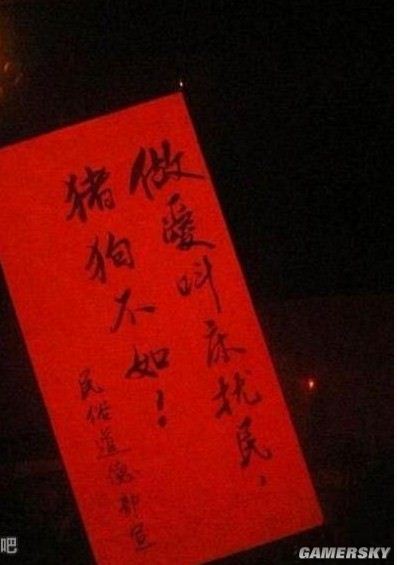 做爱叫床扰民、
猪狗不如！
民俗道德部宣
吧
GAMERSKY